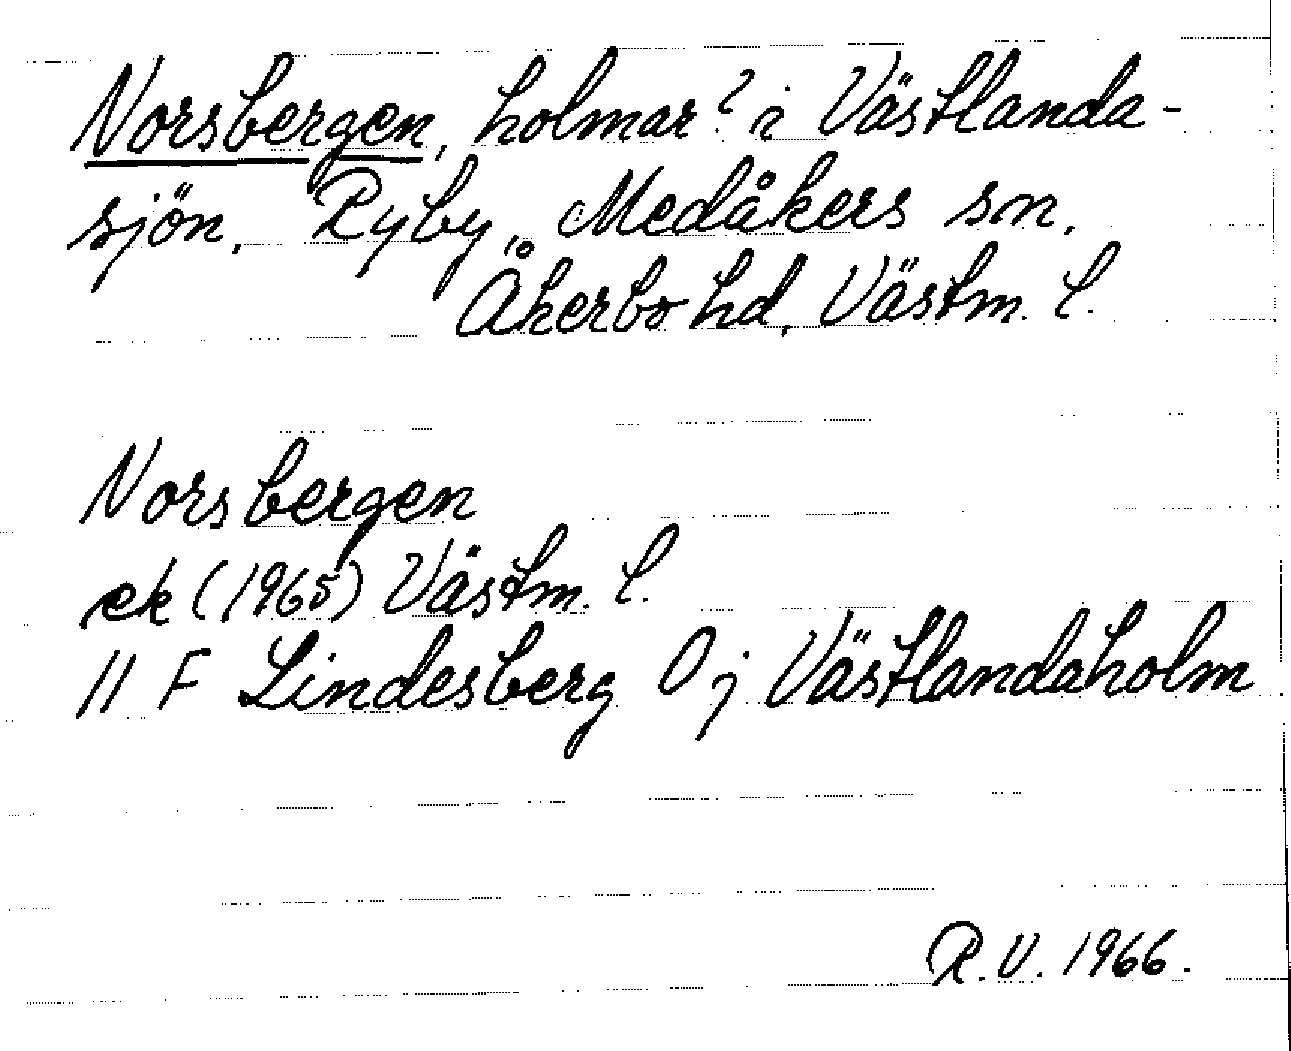 Norsbergen, holmar? i Västlanda-
sjön, Ryby, Medåkers sn,
Åkerbo hd, Västm. l.
Norsbergen
ek (1965) Västm. l.
11 F Lindesberg 0 j Västlandaholm
R.V. 1966.